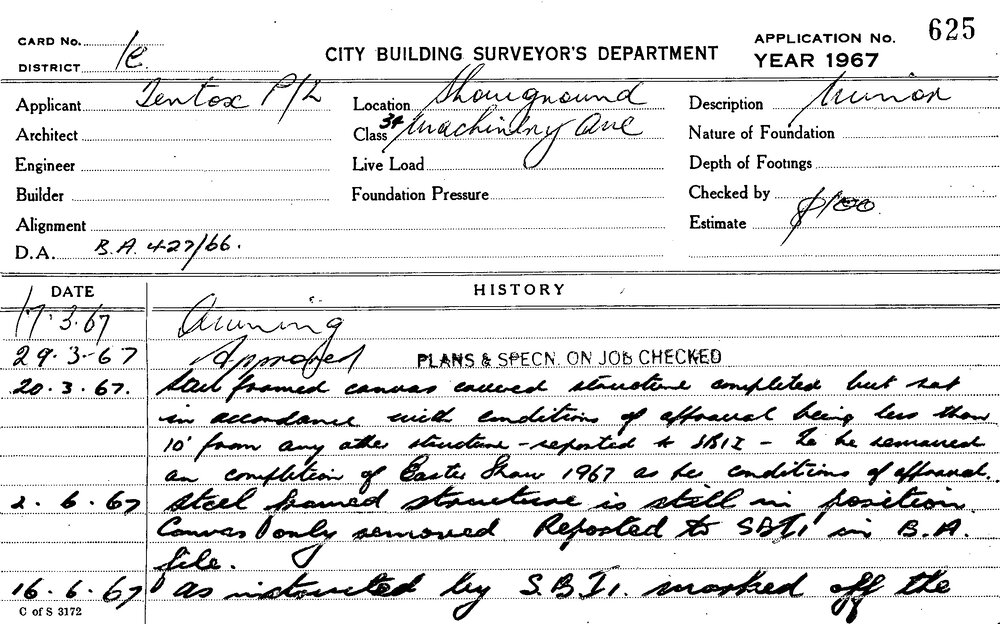 625
CARD No. 1e
CITY BUILDING SURVEYOR'S DEPARTMENT
APPLICATION No.
DISTRICT
YEAR 1967
Applicant Tentox P/L
Location Showground
Description Minor
Architect
Class 34 Machinery Ave
Nature of Foundation
Engineer
Live Load
Depth of Footings
Builder
Foundation Pressure
Checked by
Alignment
Estimate $100
D.A. B.A. 427/66.
DATE HISTORY
17.3.67 Awning
29.3-67 Approved PLANS & SPECN. ON JOB CHECKED
20.3.67. Steel framed canvas covered structure completed but not
in accordance with conditions of approval being less than
10' from any other structure - reported to SBI1 - To be removed
on completion of Easter Show 1967 as per conditions of approval.
2.6.67 Steel framed structure is still in position
Canvas only removed Reported to SBI1 in B.A.
file.
16.6.67 As instructed by S.B.I1. marked off the
C of S 3172